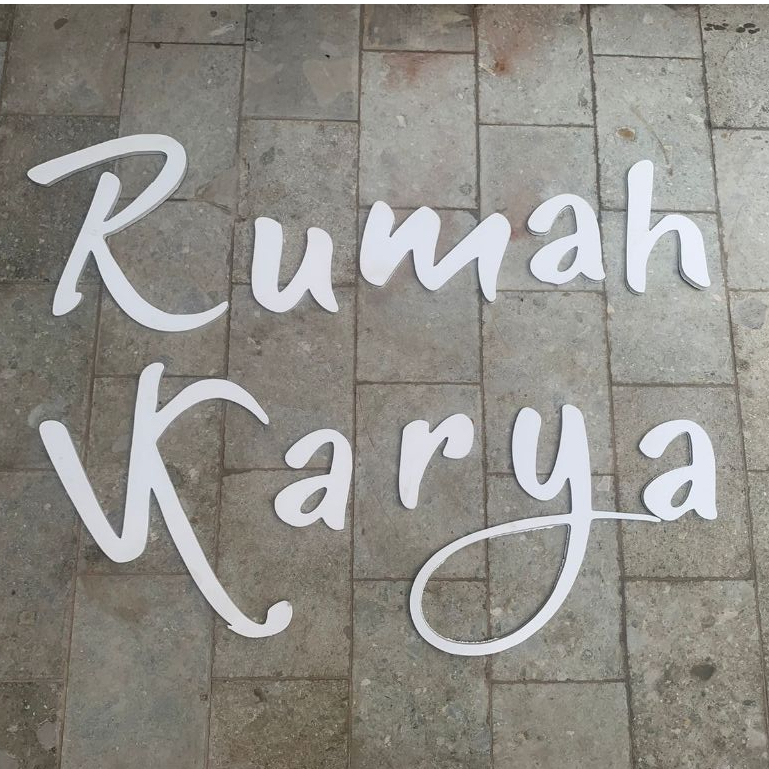 Rumah
Karya